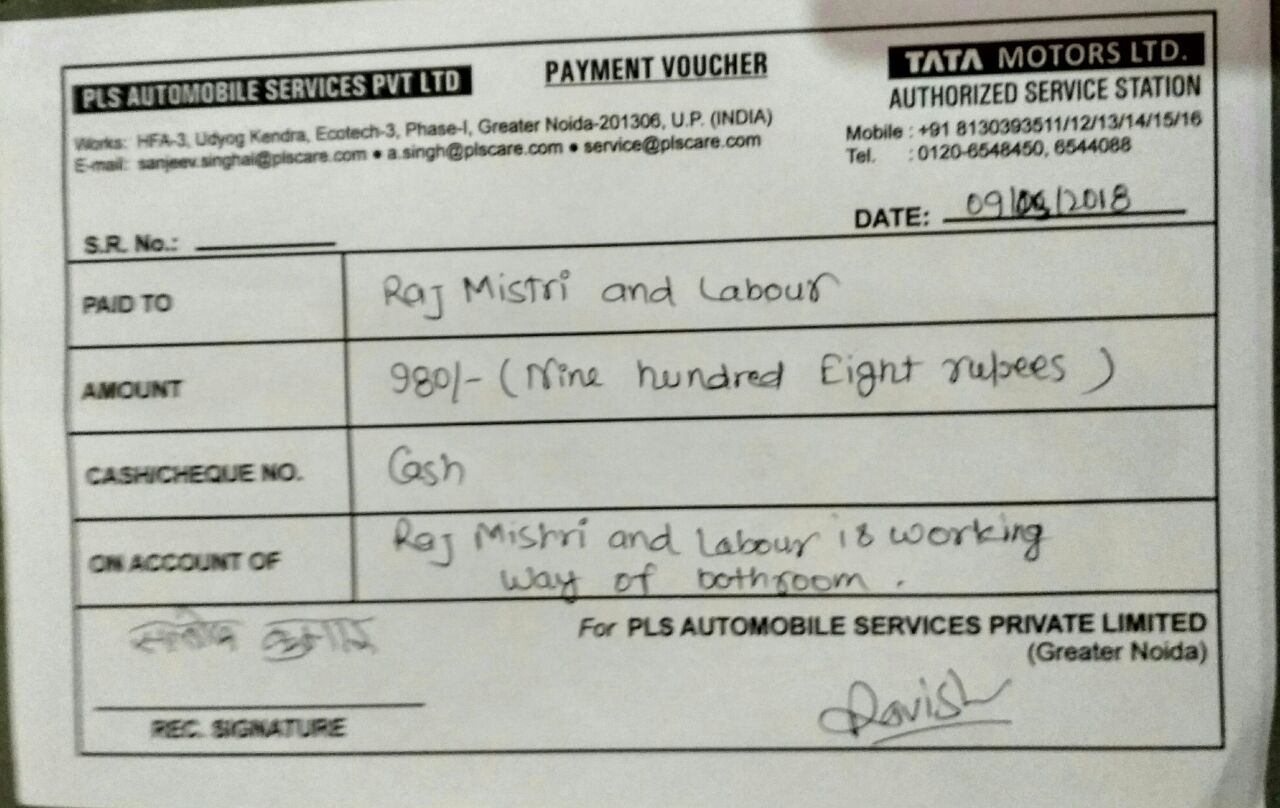 PLS AUTOMOBILE SERVICES PVT LTD
PAYMENT VOUCHER
TATA MOTORS LTD.
AUTHORIZED SERVICE STATION
Works: HFA-3, Udyog Kendra, Ecotech-3, Phase-I, Greater Noida-201306, U.P. (INDIA)
E-mail: sanjeev.singhal@plscare.com ● a.singh@plscare.com ● service@plscare.com
Mobile : +91 8130393511/12/13/14/15/16
Tel. : 0120-6548450, 6544088
DATE: 09/06/2018
S.R. No.:
PAID TO Raj Mistri and Labour
AMOUNT 980/- (Nine hundred Eight rupees )
CASH/CHEQUE NO. Cash
ON ACCOUNT OF Raj Mistri and Labour is working
way of bothroom .
कुमार
For PLS AUTOMOBILE SERVICES PRIVATE LIMITED
(Greater Noida)
Ravish
REC. SIGNATURE